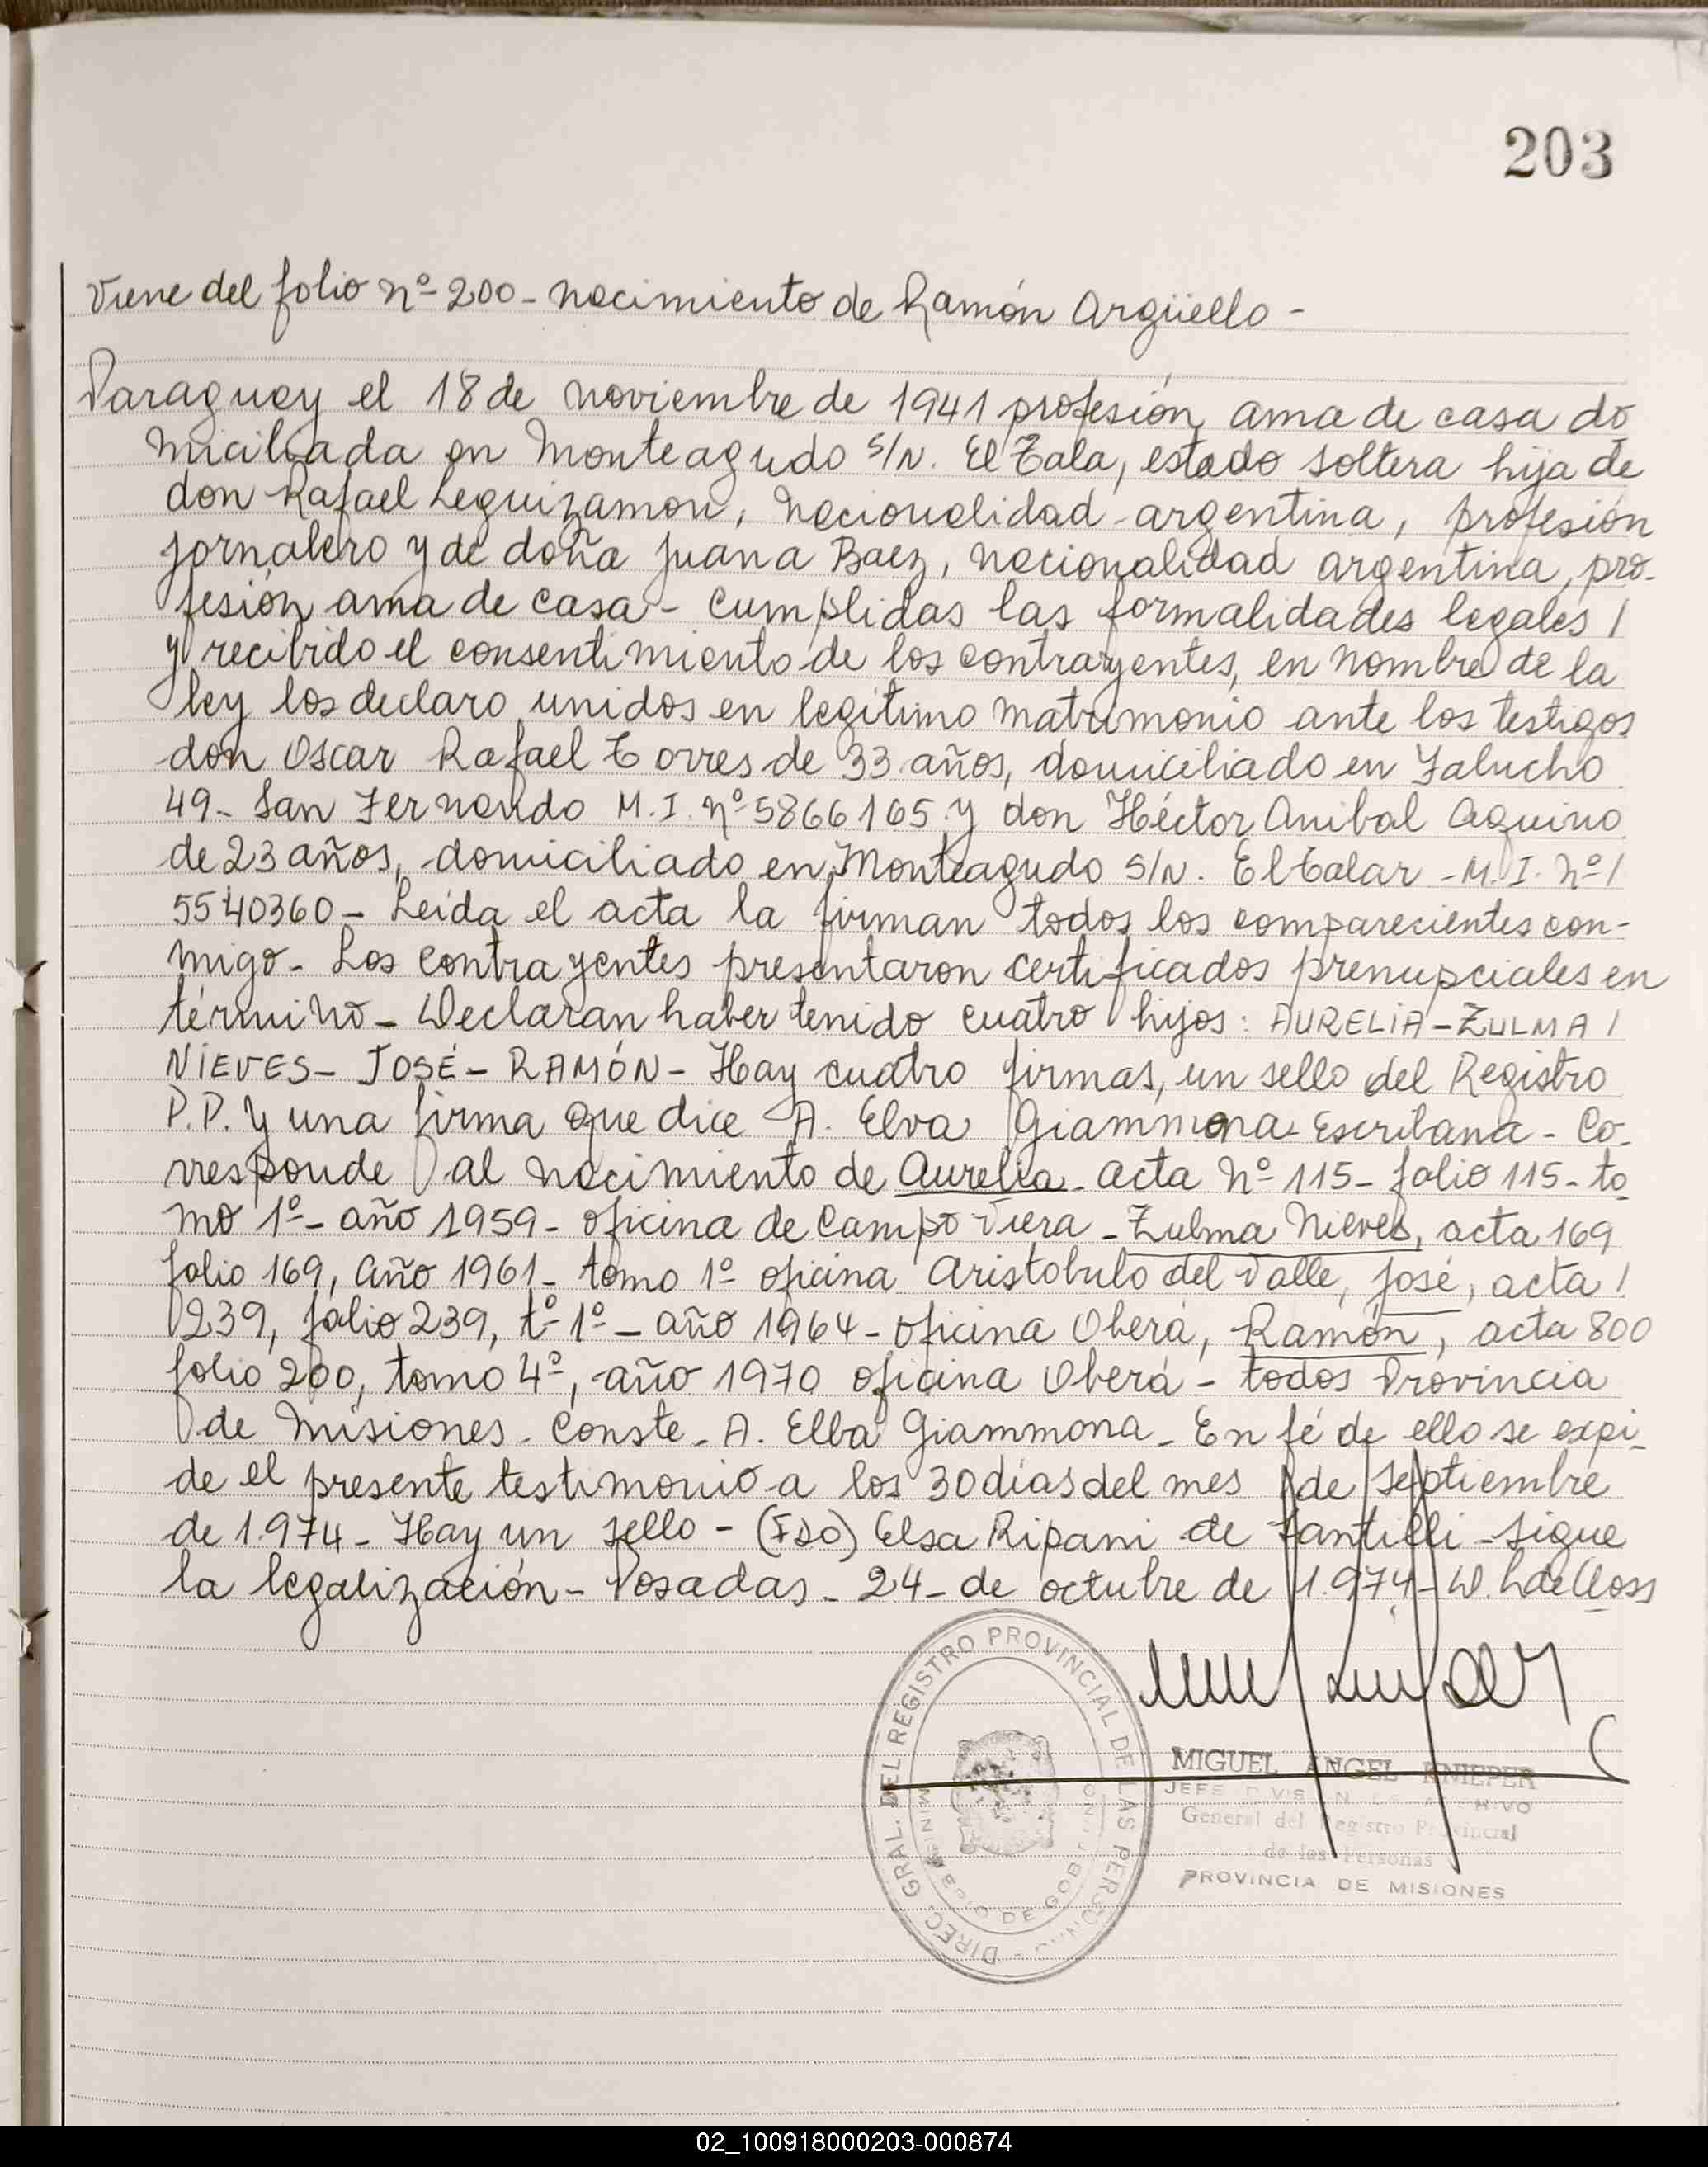 203
Viene del folio nº 200 - nacimiento de Ramón Argüello -
Paraguay el 18 de noviembre de 1941 profesión ama de casa do
miciliada en Monteagudo s/n. El Tala, estado soltera hija de
don Rafael Leguizamon, nacionalidad argentina, profesión
jornalero y de doña Juana Baez, nacionalidad argentina, pro-
fesión ama de casa - Cumplidas las formalidades legales /
y recibido el consentimiento de los contrayentes, en nombre de la
ley los declaro unidos en legítimo matrimonio ante los testigos
don Oscar Rafael Torres de 33 años, domiciliado en Falucho
49 - San Fernando M.I. nº 5866165 y don Héctor Anibal Aquino
de 23 años, domiciliado en Monteagudo s/n. El Talar - M.I. nº /
5540360 - Leída el acta la firman todos los comparecientes con-
migo - Los contrayentes presentaron certificados prenupciales en
término - Declaran haber tenido cuatro hijos: AURELIA - ZULMA /
NIEVES - JOSÉ - RAMÓN - Hay cuatro firmas, un sello del Registro
P.P. y una firma que dice A. Elva Giammona Escribana - Co-
rresponde al nacimiento de Aurelia - acta nº 115 - folio 115 - to
mo 1º - año 1959 - oficina de Campo Viera - Zulma Nieves, acta 169
folio 169, año 1961 - tomo 1º oficina Aristobulo del Valle, José, acta /
239, folio 239, tº 1º - año 1964 - oficina Oberá, Ramón, acta 800
folio 200, tomo 4º, año 1970 oficina Oberá - todos Provincia
de Misiones - Conste - A. Elba Giammona - En fé de ello se expi-
de el presente testimonio a los 30 días del mes de septiembre
de 1.974 - Hay un sello - (FDO) Elsa Ripani de Santilli - Sigue
la legalización - Posadas - 24 - de octubre de 1.974 -
DIREC. GRAL. DEL REGISTRO PROVINCIAL DE LAS PERSONAS
MINISTERIO DE GOBIERNO
MIGUEL ANGEL KNIEPER
JEFE DIVISION ARCHIVO
General del Registro Provincial
de las Personas
PROVINCIA DE MISIONES
02_100918000203-000874